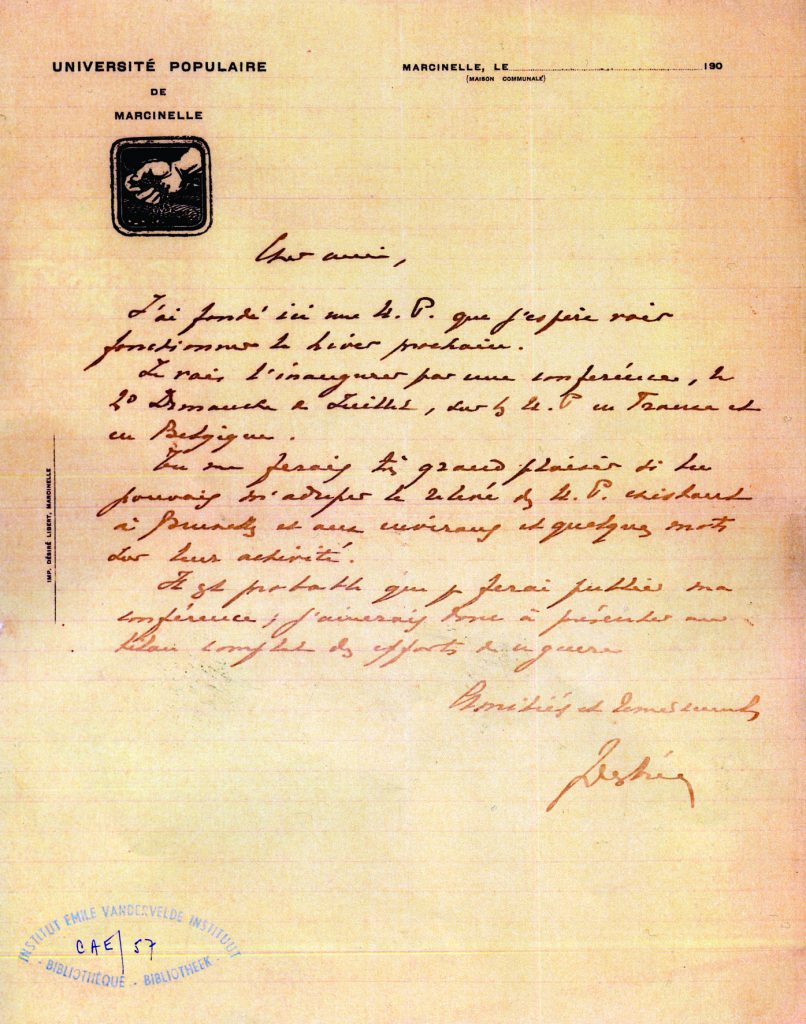 UNIVERSITÉ POPULAIRE
DE
MARCINELLE
MARCINELLE, LE 190
(MAISON COMMUNALE)
Cher ami,
J'ai fondé ici une U. P. que j'espère voir
fonctionner le hiver prochain.
Je vais l'inaugurer par une conférence, le
2º Dimanche de Juillet, sur les U. P. en France et
en Belgique.
Tu me ferais très grand plaisir si tu
pouvais m'adresser le relevé des U. P. existant
à Bruxelles et aux environs et quelques mots
sur leur activité.
Il est probable que je ferai publier ma
conférence ; j'aimerais donc à présenter un
bilan complet des efforts de ce genre
Amitiés et remerciements
JDestrée
IMP. DÉSIRÉ LIBERT, MARCINELLE
INSTITUT EMILE VANDERVELDE INSTITUUT
CAE/57
- BIBLIOTHÈQUE - BIBLIOTHEEK -